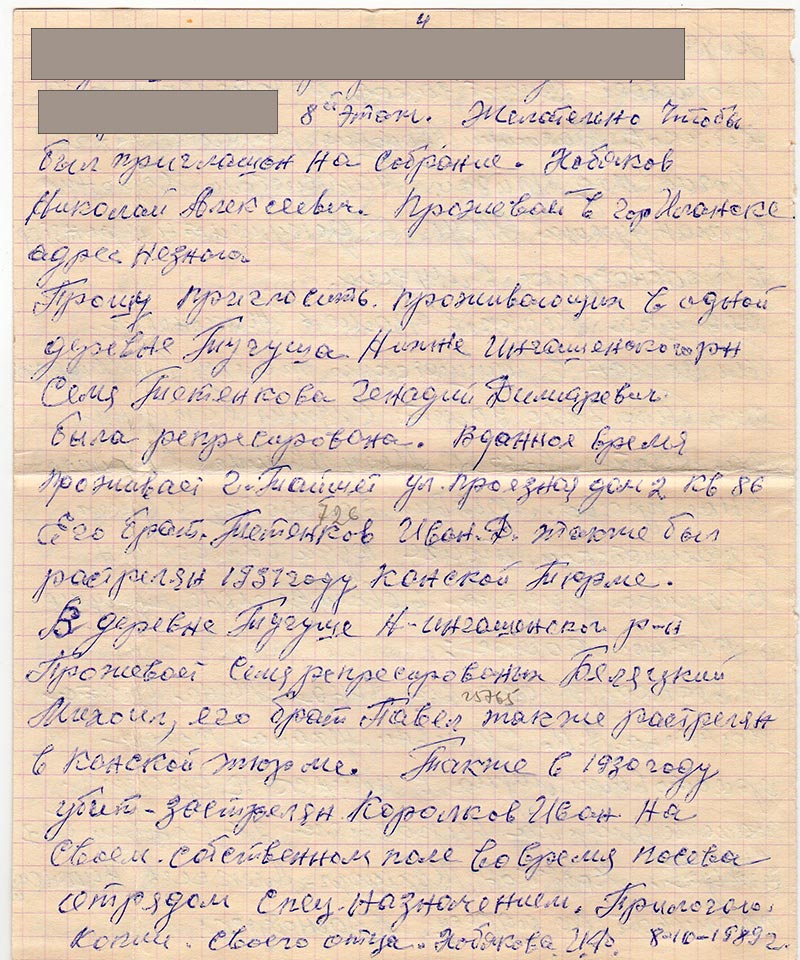 4
8й этаж. Желательно чтобы
был приглашон на собрание. Хобяков
Николай Алексеевич. Прожевой в гор Иланске
адрес незнога
Прошу пригласить. проживающих в одной
деревне Тугуша Нижне Ингашенского рн
Семя Тетенкова Генадий Димидревич
была репресирована. В данное время
проживает г. Тайшет ул. проезная дом 2 кв 86
726
Его брат. Тетенков Иван. Д. также был
растрелян 1937 году Канской тюрме.
В деревне Тугуше Н-ингашонског р-н
Прожевает Семя репресированых Беляцкий
25765
Михаил, его брат Павел также растрелян
в Канской тюрме. Также в 1930 году
убит-застрелян Королков Иван на
своем собственном поле во время посева
сотрядом спец. назначением. Прилогою.
копии. своего отца. Хобякова. И.Ф. 8-10-1989 г.